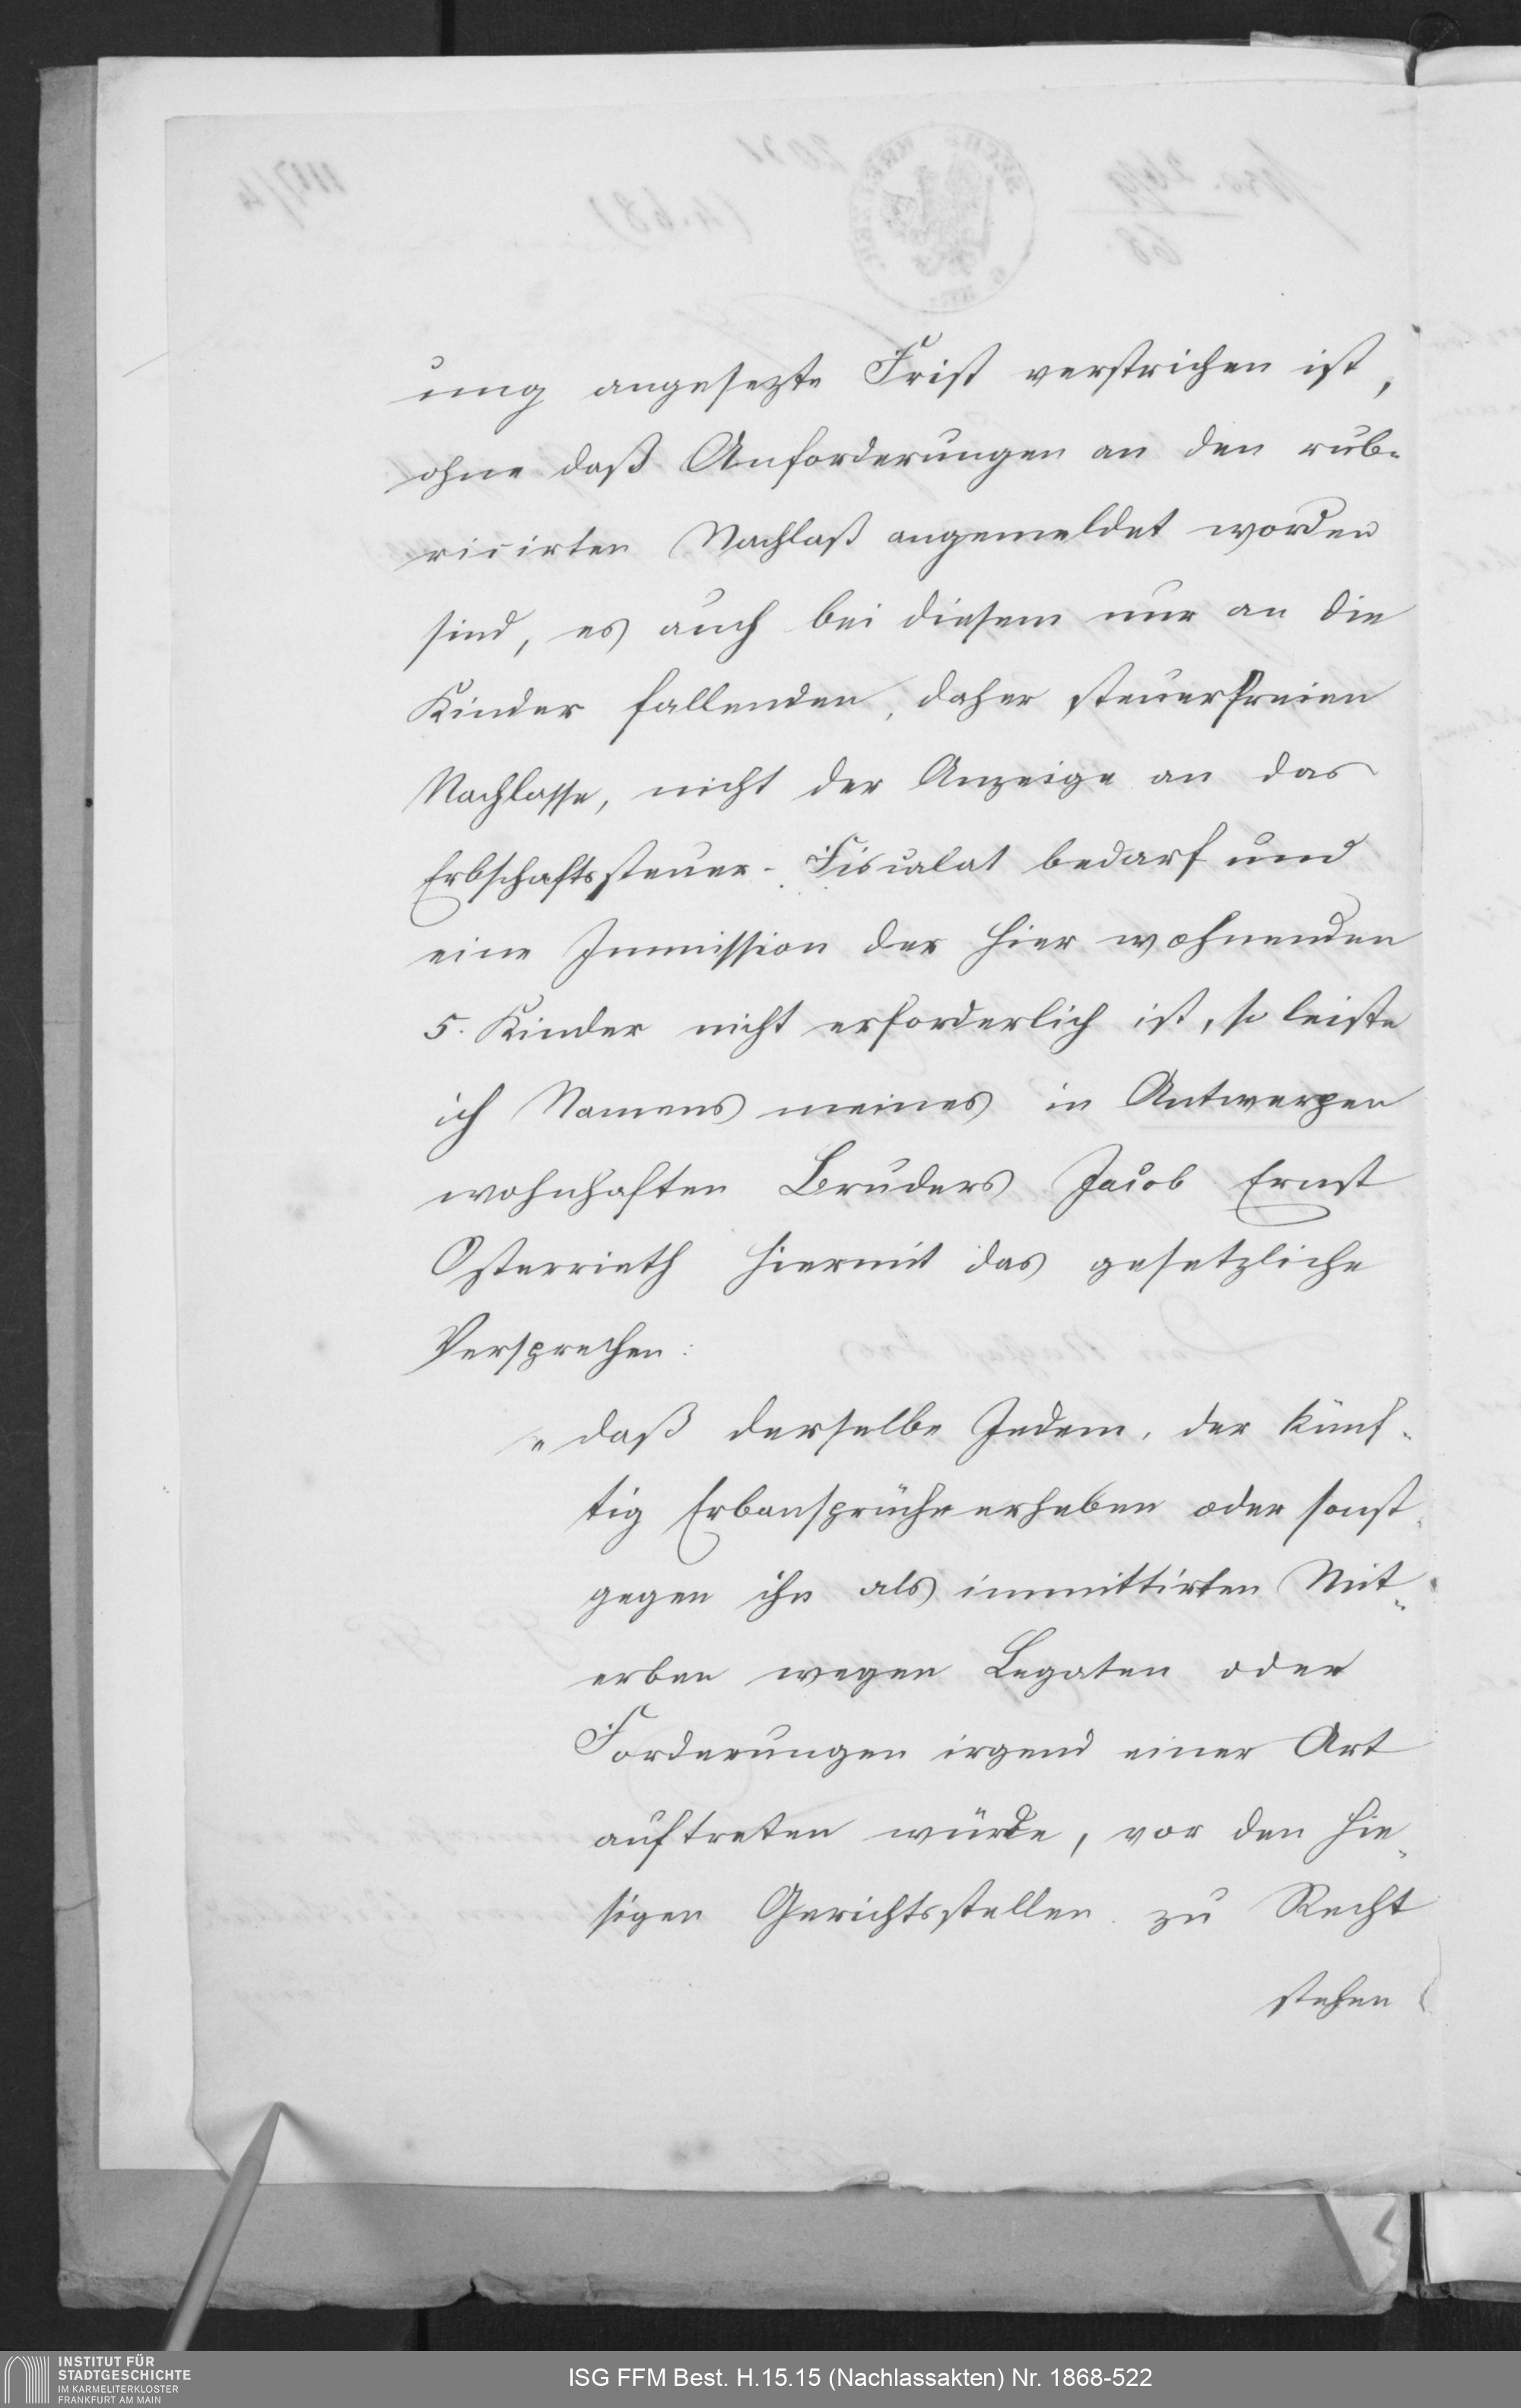 ung angesezte Frist verstrichen ist,
ohne daß Anforderungen an den rub-
ricirten Nachlaß angemeldet worden
sind, es auch bei diesem nur an die
Kinder fallenden, daher steuerfreien
Nachlasse, nicht der Anzeige an das
Erbschaftssteuer-Fiscalat bedarf und
eine Immission der hier wohnenden
5. Kinder nicht erforderlich ist, so leiste
ich Namens meines in Antwerpen
wohnhaften Bruders Jacob Ernst
Osterrieth hiermit das gesetzliche
Versprechen:
„daß derselbe Jedem, der künf-
tig Erbansprüche erheben oder sonst
gegen ihn als immittirten Mit-
erben wegen Legaten oder
Forderungen irgend einer Art
auftreten würde, vor den hie-
sigen Gerichtsstellen zu Recht
stehen
INSTITUT FÜR
STADTGESCHICHTE
IM KARMELITERKLOSTER
FRANKFURT AM MAIN
ISG FFM Best. H.15.15 (Nachlassakten) Nr. 1868-522